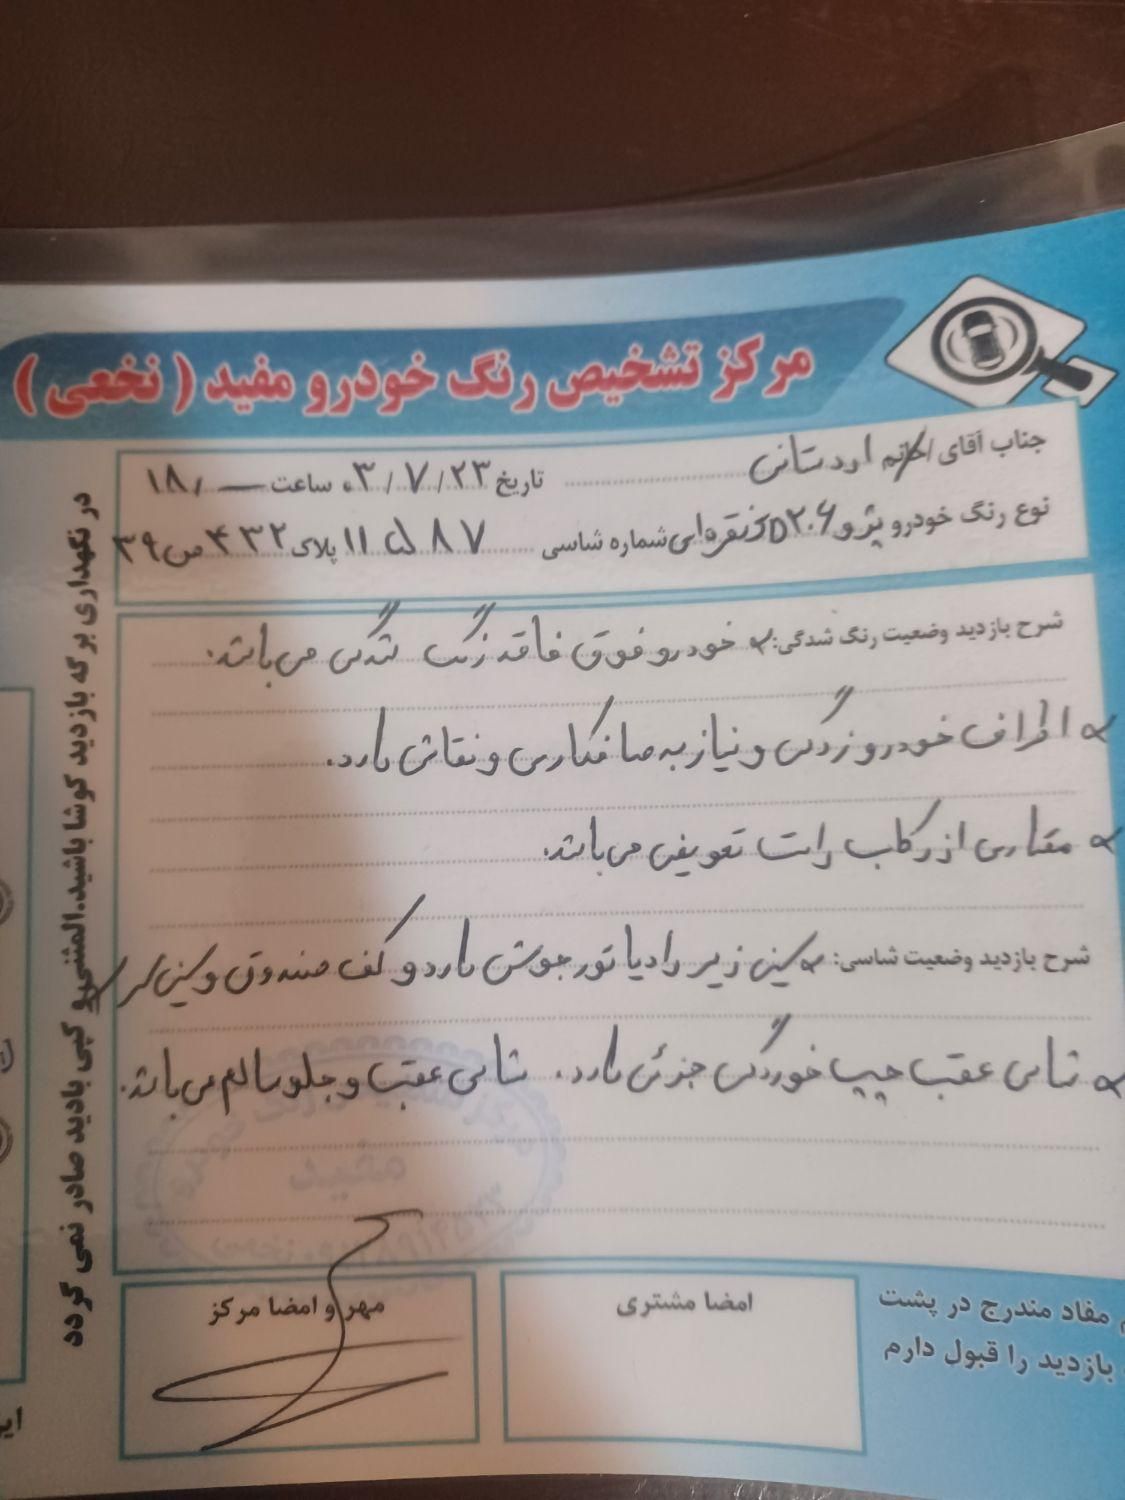 مرکز تشخیص رنگ خودرو مفید ( نخعی )
جناب آقای / خانم اردستانی تاریخ ۰۳/۷/۲۳ ساعت ۱۸
نوع رنگ خودرو پژو ۲۰۶ SD نقره‌ای شماره شاسی ۸۷ پلاک ۱۱ ۴۳۲ ص ۳۹
شرح بازدید وضعیت رنگ شدگی: خودرو فوق فاقد رنگ شدگی می باشد.
اطراف خودرو زدگی و نیاز به صافکاری و نقاشی دارد.
مقداری از رکاب راست تعویض می باشد.
شرح بازدید وضعیت شاسی: سینی زیر رادیاتور جوش دارد و کف صندوق و سینی
شاسی عقب چپ خوردگی جزئی دارد. شاسی عقب و جلو سالم می باشد.
مهر و امضا مرکز
امضا مشتری
مفاد مندرج در پشت
بازدید را قبول دارم
در نگهداری برگه بازدید کوشا باشید، المثنی و کپی بازدید صادر نمی گردد